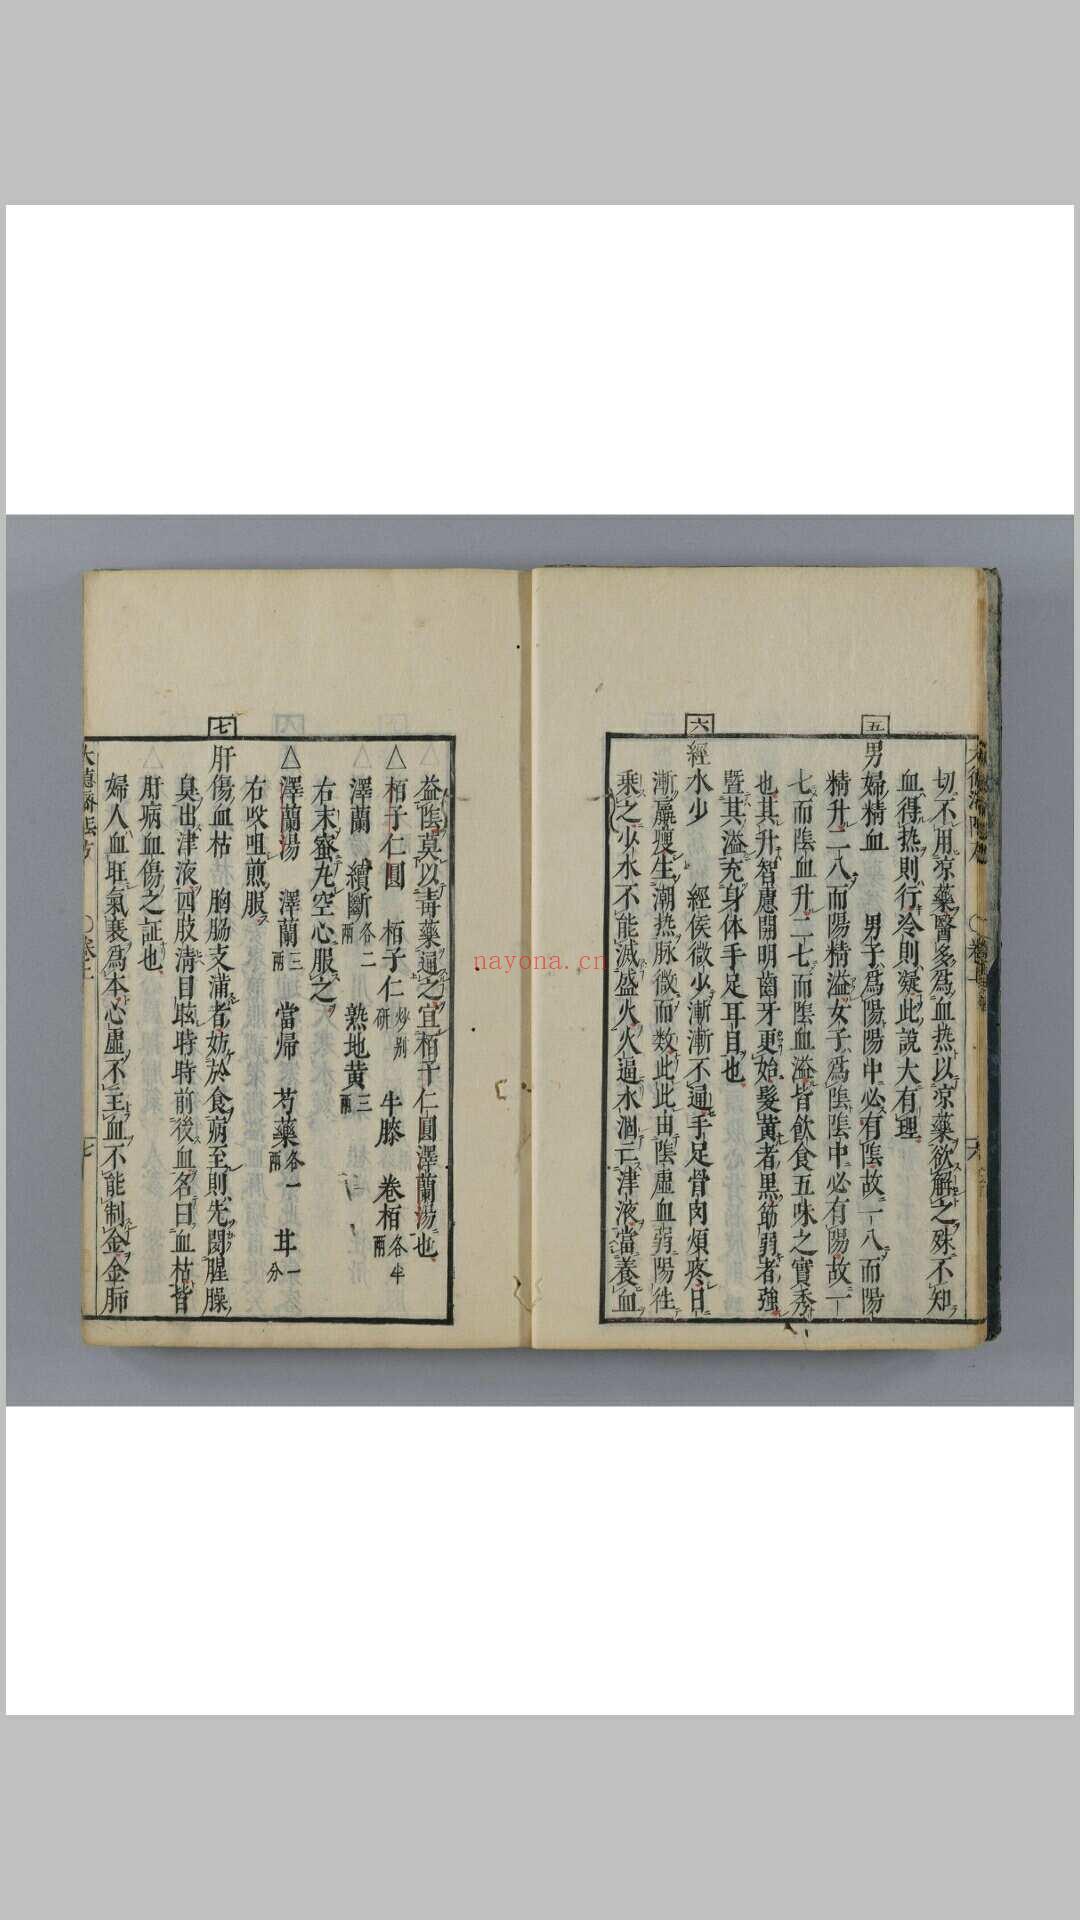 切不用凉藥醫多為血热以凉藥欲解之殊不知
血得热則行冷則凝此說大有理
五
男婦精血 男子為陽陽中必有陰故一八而陽
精升二八而陽精溢女子為陰陰中必有陽故一
七而陰血升二七而陰血溢皆飲食五味之實秀
也其升智慮開明齒牙更始髮黄者黒筋弱者強
暨其溢充身体手足耳目也
六
經水少 經侯微少漸漸不通手足骨肉煩疼日
漸羸瘦生潮热脉微而数此此由陰虛血弱陽往
乘之少水不能滅盛火火逼水涸亡津液當養血
益陰莫以青藥通之宜栢子仁圓澤蘭湯也
△栢子仁圓 栢子仁炒別研 牛膝 卷栢各半兩
澤蘭 續斷各二兩 熟地黄三兩
右末蜜丸空心服之
△澤蘭湯 澤蘭三兩 當帰 芍藥各一兩 甘一分
右㕮咀煎服
七
肝傷血枯 胸腸支滿者妨於食病至則先聞腥臊
臭出津液四肢清目眩時時前後血名曰血枯皆
肝病血傷之証也
婦人血旺氣衰為本心虛不主血不能制金金肺
大德濟陰方 〇卷二 七
nayona.cn